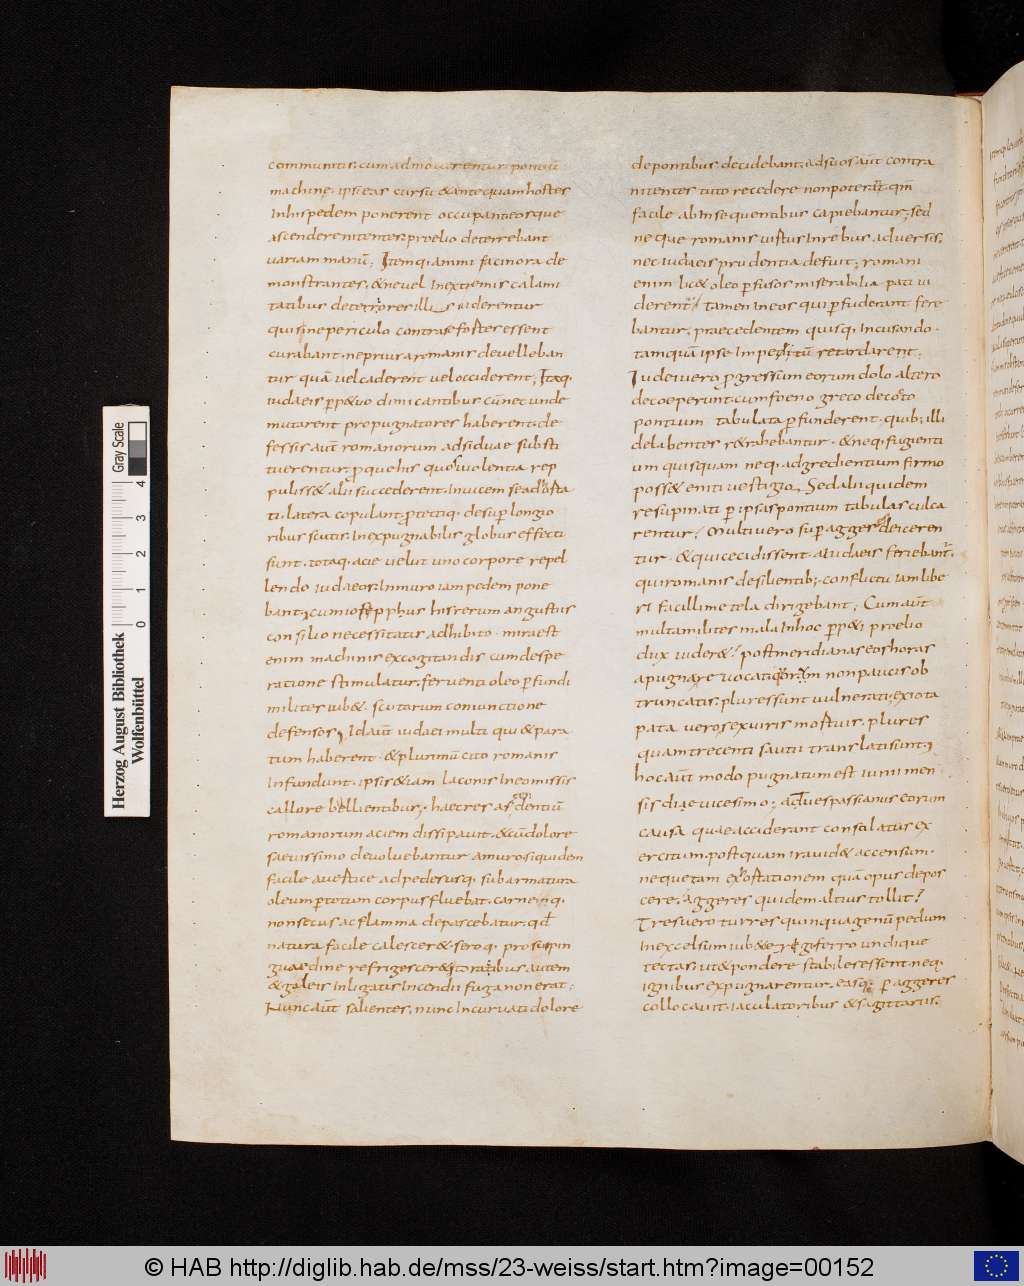 communitis. cum admouerentur. pontiū
machine. ipsi eas cursu & ante quam hostes
Inhis pedem ponerent occupant eosque
ascendere nitentes. proelio deterrebant
uariam manū; Item qi animi facinora de
monstrantes, & neuel Inextremis calami
tatibus deteriores illis uiderentur
qui sine periculo contra se fortes essent
curabant. ne prius a romanis deuelleban
tur quā uel caderent uel occiderent; Itaq.
iudaeis pp&uo dimicantibus cū nec unde
mutarent propugnatores haberent. de
fessis aut romanorum adsiduae substi
tuerentur. pro quehis quos uolentia rep
puliss& alii succederent. Inuicem se adhorta
ti. latera copulant protectiq. desup longio
ribus scutis. Inexpugnabilis globus effecti
sunt. totaq. acie uelut uno corpore repel
lendo iudaeos. In muro iam pedem pone
bant; cum iosepphus his rerum angustiis
consilio necessitatis adhibito. mira est
enim machinis excogitandis cum despe
ratione stimulatur. feruenti oleo pfundi
milites iub&. scutorum coniunctione
defensos; Id aut iudaei multi qui & para
tum haberent. & plurimū cito romanis
Infundunt. ipsis & iam laconis Ineomissis
callore bullientibus. haec res as dentiū
romanorum aciem dissipauit. & cū dolore
saeuissimo deuoluebantur a muro. siquidem
facile a uertice ad pedes usq. sub armatura
oleum p totum corpus fluebat. carnemq.
non secus ac flamma depascebatur. qd
natura facile calescer& seroq. pro suspin
guaedine refrigescer&. toracibus autem
& galeis inligatis Incendii fuga non erat;
Nunc aut salientes. nunc Incuruati dolore
de pontibus decidebant. ad suos aut contra
nitentes tuto recedere non poterat. qm
facile ab Insequentibus capiebantur; sed
neque romanis uirtus In rebus aduersis.
nec iudaeis prudentia defuit; romani
enim lic& oleo pfusos miserabilia pati ui
derent. tamen In eos qui pfuderant fere
bantur. praecedentem quisq. Incusando.
tamquā ipse Impetū retardarent;
Iudei uero progressum eorum dolo altero
decoeperunt. cum foeno greco decocto
pontium tabulata pfunderent. quib; illi
delabentes r&rahebantur. & neq. fugienti
um quisquam neq. adgredientium firmo
poss& eniti uestigio. Sed alii quidem
resupinati p ipsas pontium tabulas culca
rentur. Multi uero sup aggere deiceren
tur. & qui cecidissent. a iudaeis feriebant.
qui romanis desilientib; conflictu iam libe
ri facillime tela dirigebant; Cum aut
multa milites mala In hoc pp&i proelio
dux uider&. post meridianas eos horas
a pugnare uocat. quorum non paucis ob
truncatis. plures sunt uulnerati; ex iota
pata uero sex uiris mortuis. plures
quam trecenti sautii translati sunt;
hoc aut modo pugnatum est iunii men
sis diae uicesimo; at uespassianus eorum
causa quae acciderant consulatus ex
ercitum. postquam ira uid& accensum.
nequetam exhortationem quā opus depos
cere. aggeres quidem altius tollit.
Tres uero turres quinquagenū pedum
In excelsum iub& erigi ferro undique
tectas. ut & pondere stabiles essent. neq.
ignibus expugnarentur. easq. p aggeres
collocauit. iaculatoribus & sagittariis.
Herzog August Bibliothek
Wolfenbüttel
0 1 2 3 4
Gray Scale
© HAB http://diglib.hab.de/mss/23-weiss/start.htm?image=00152